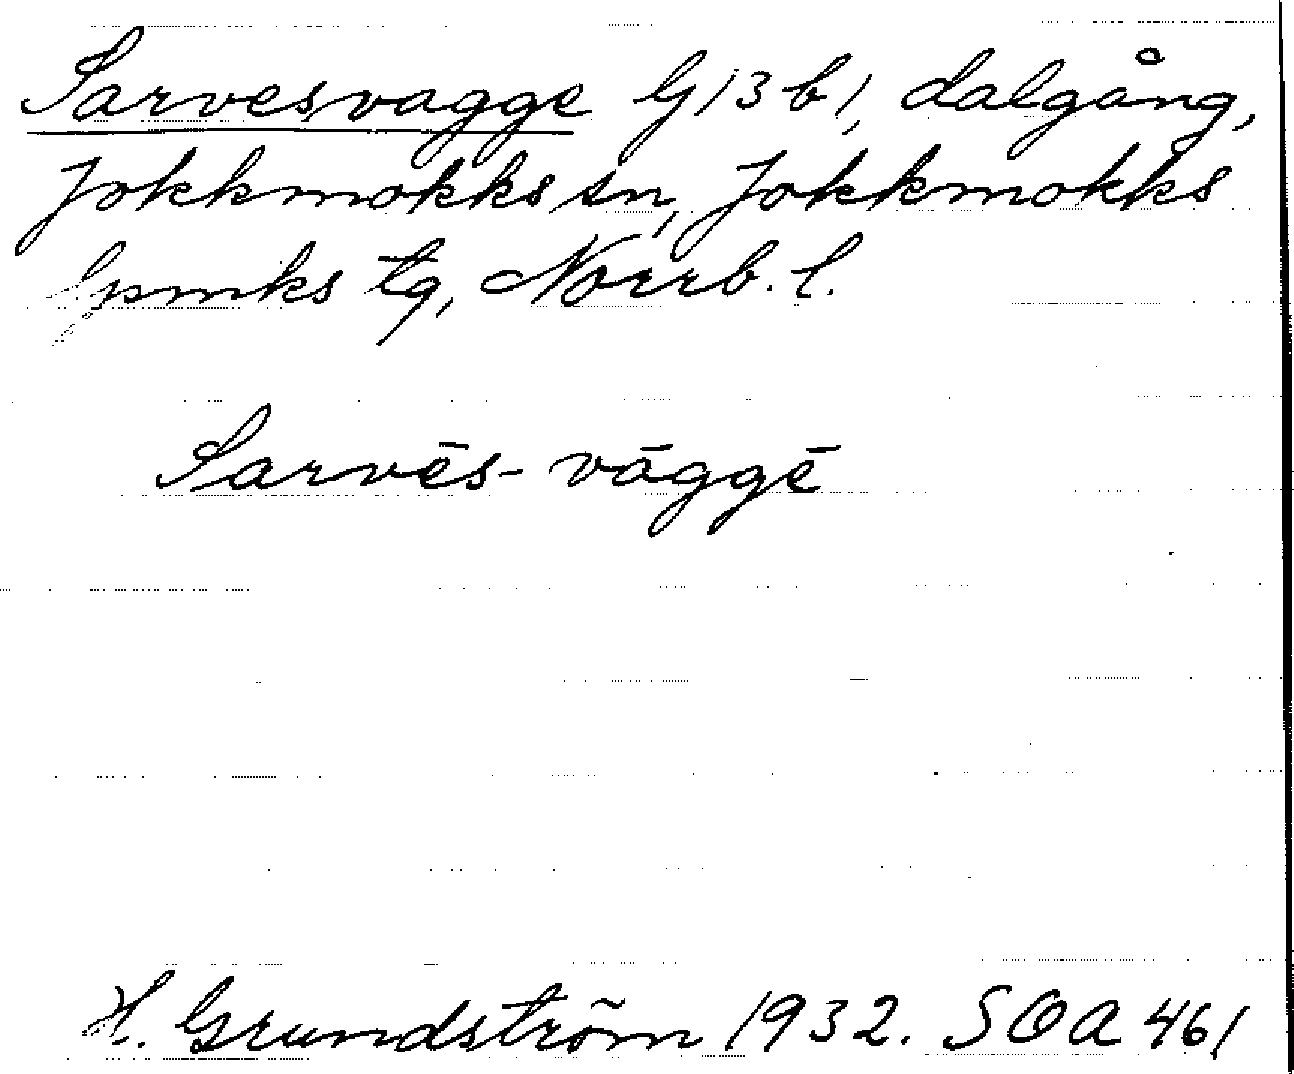 Sarvesvagge G 13 b 1, dalgång,
Jokkmokks sn, Jokkmokks
lpmks tg, Norrb. l.
Sarvēs- vāggē
H. Grundström 1932. SOA 461